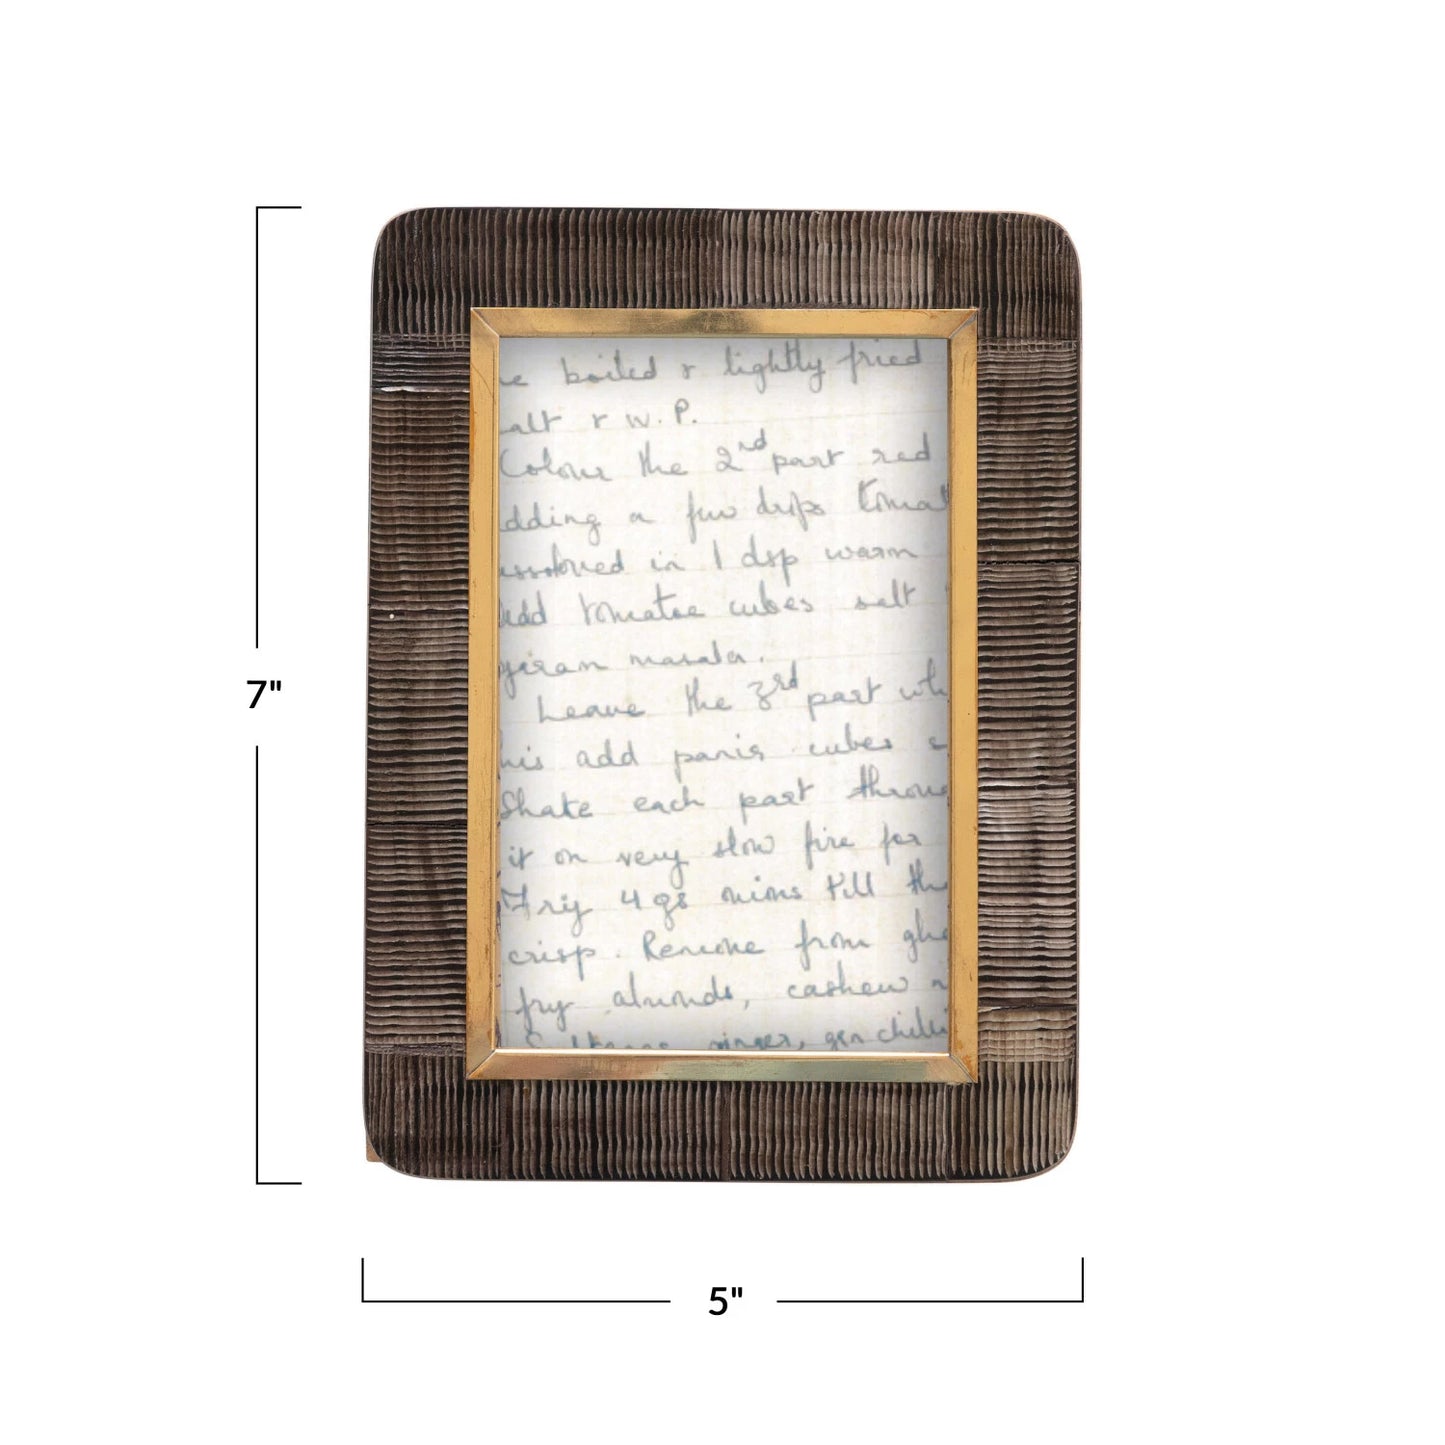 e boiled & lightly fried
alt & W.P.
Colour the 2nd part red
dding a few drops tomat
issolved in 1 dsp warm
Add tomatoe cubes salt
giram masala.
Leave the 3rd part wh
his add panir cubes &
Shake each part throug
it on very slow fire for
Fry 4 gs till the
crisp. Remove from ghe
fry almonds, cashew
Sultanas ginger, grn chilli
7"
5"